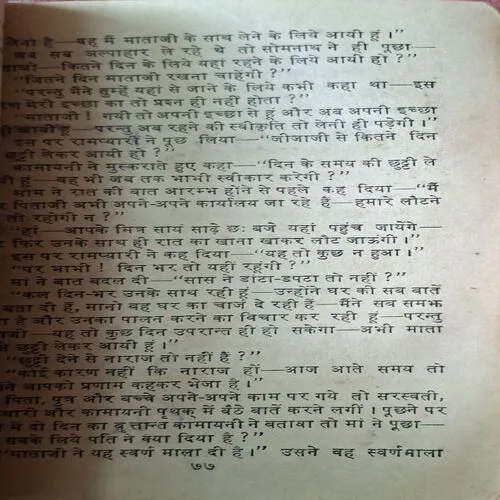 लेनी है—वह मैं माताजी के साथ लेने के लिये आयी हूं।”
जब सब अल्पाहार ले रहे थे तो सोमनाथ ने ही पूछा—
कितने दिन के लिये यहां रहने के लिये आयी हो ?”
“जितने दिन माताजी रखना चाहेंगी ?”
“परन्तु मैंने तुम्हें यहां से जाने के लिये कभी कहा था—इस
मेरी इच्छा का तो प्रश्न ही नहीं होता ?”
“माताजी ! गयी तो अपनी इच्छा से हूं और अब अपनी इच्छा
परन्तु अब रहने की स्वीकृति तो लेनी ही पड़ेगी।”
इस पर रामप्यारी ने पूछ लिया—“जीजाजी से कितने दिन
छुट्टी लेकर आयी हो ?”
कामायनी ने मुस्कराते हुए कहा—“दिन के समय की छुट्टी ले
हूं—वह भी जब तक भाभी स्वीकार करेगी ?”
सोम ने रात की बात आरम्भ होने से पहले कह दिया—“मैं
पिताजी अभी अपने-अपने कार्यालय जा रहे हैं—हमारे लौटने
तो रहोगी न ?”
“हां—आपके मित्र सायं साढ़े छः बजे यहां पहुंच जायेंगे—
फिर उनके साथ ही रात का खाना खाकर लौट जाऊंगी।”
इस पर रामप्यारी ने कह दिया—“यह तो कुछ न हुआ।”
“पर भाभी ! दिन भर तो यहीं रहूंगी ?”
मां ने बात बदल दी—“सास ने डांटा-डपटा तो नहीं ?”
“कल दिन-भर उनके साथ रही हूं—उन्होंने घर की सब बातें
बता दी हैं, मानो वह घर का चार्ज दे रही हैं—मैंने सब समझ
है और उनका पालन करने का विचार कर रही हूं—परन्तु
यह तो कुछ दिन उपरान्त ही हो सकेगा—अभी माता
से छुट्टी लेकर आयी हूं।”
“छुट्टी देने से नाराज तो नहीं है ?”
“कोई कारण नहीं कि नाराज हों—आज आते समय तो
आपको प्रणाम कहकर भेजा है।”
पिता, पुत्र और बच्चे अपने-अपने काम पर गये तो सरस्वती,
और कामायनी पृथक् में बैठे बातें करने लगीं। पूछने पर
में दो दिन का वृत्तान्त कामायनी ने बताया तो मां ने पूछा—
के लिये पति ने क्या दिया है ?”
“माताजी ने यह स्वर्ण माला दी है।” उसने वह स्वर्णमाला
७७